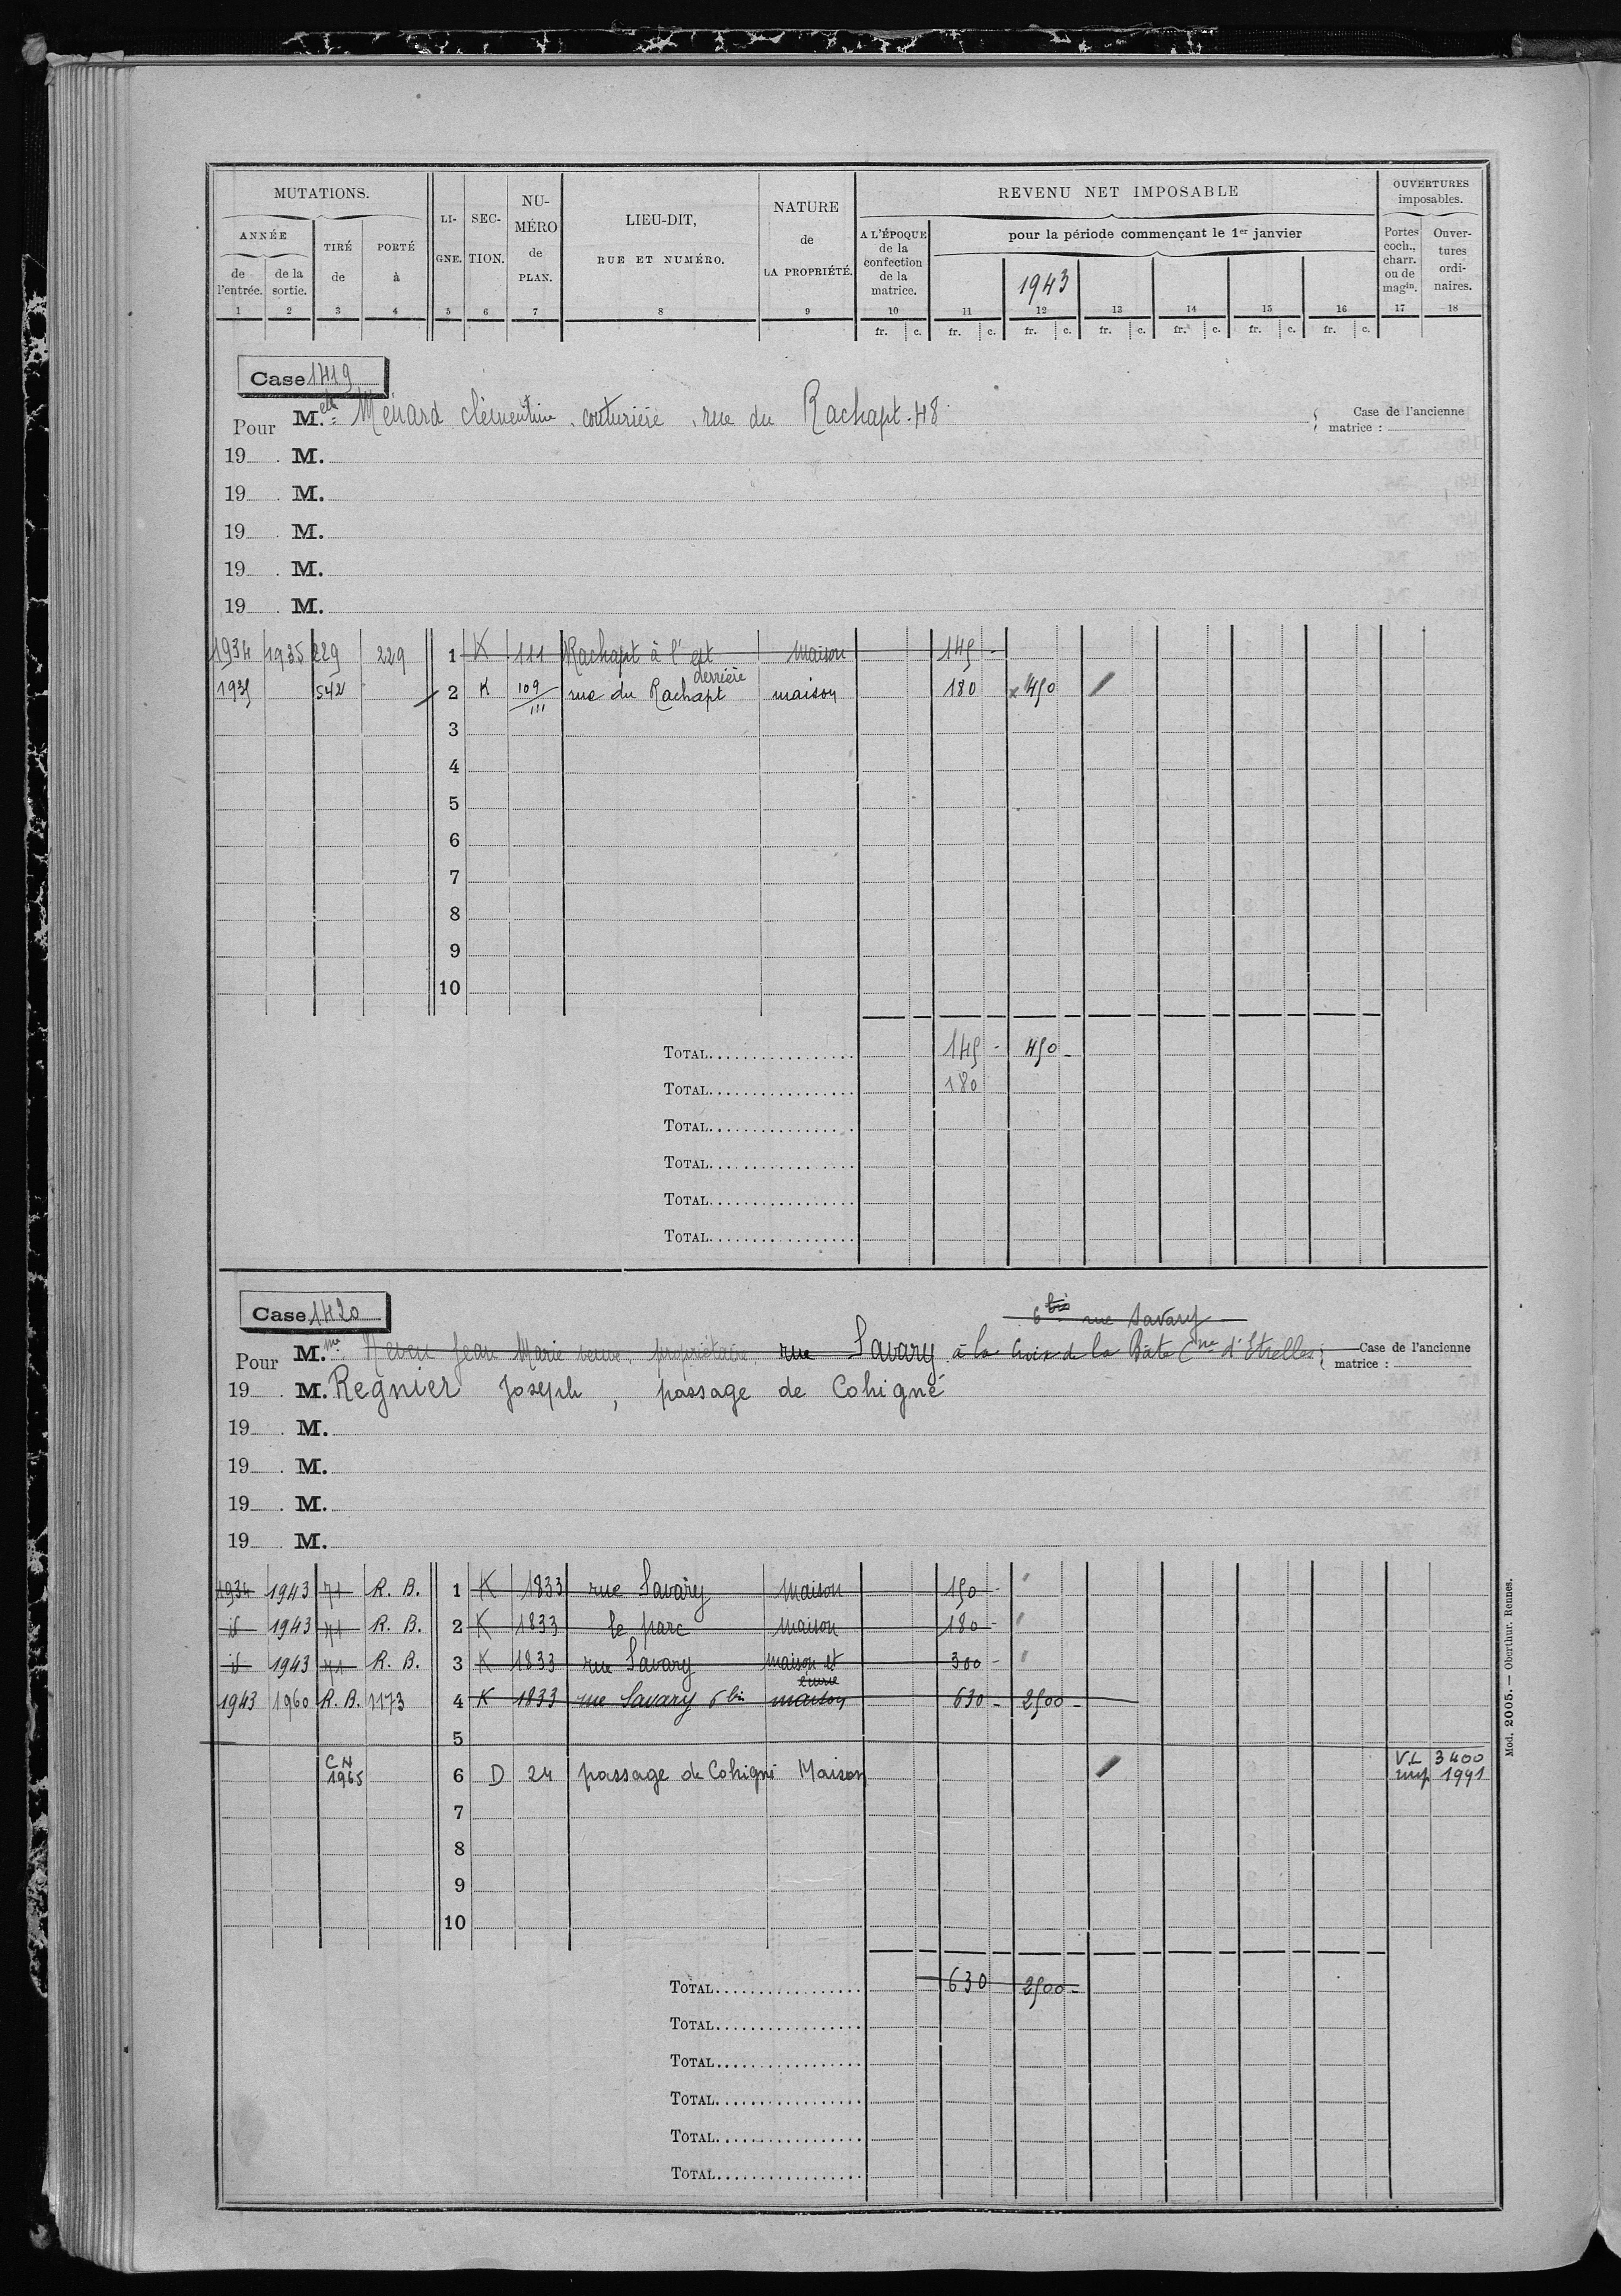 MUTATIONS. LI- SEC- NU- LIEU-DIT, NATURE REVENU NET IMPOSABLE OUVERTURES
imposables.
ANNÉE TIRÉ PORTÉ GNE. TION. MÉRO RUE ET NUMÉRO. de A L'ÉPOQUE pour la période commençant le 1er janvier Portes Ouver-
de de la de à de LA PROPRIÉTÉ. de la 1943 coch., tures
l'entrée. sortie. PLAN. confection charr. ordi-
de la ou de naires.
matrice. magin.
1 2 3 4 5 6 7 8 9 10 11 12 13 14 15 16 17 18
fr. c. fr. c. fr. c. fr. c. fr. c. fr. c. fr. c.
Case 1419
Pour M.elle Ménard Clémentine, couturière, rue du Rachapt. 48 Case de l'ancienne
matrice :
19 . M.
19 . M.
19 . M.
19 . M.
19 . M.
1934 1935 229 229 1 K 111 Rachapt à l'est Maison 145 -
derrière
1935 542 2 K 109/111 rue du Rachapt maison 180 x 450
3
4
5
6
7
8
9
10
TOTAL 145 - 450 -
TOTAL 180
TOTAL
TOTAL
TOTAL
TOTAL
6 bis rue Savary
Case 1420
Pour M.me Jean Marie veuve, propriétaire, rue Savary à la Croix de la Bâte Cne d'Etrelles Case de l'ancienne
matrice :
19 . M. Regnier Joseph, passage de Cohigné
19 . M.
19 . M.
19 . M.
19 . M.
1934 1943 71 R. B. 1 K 1833 rue Savary Maison 150 -
id 1943 71 R. B. 2 K 1833 le parc Maison 180 -
id 1943 71 R. B. 3 K 1833 rue Savary maison et 300 -
écurie
1943 1960 R. B. 1173 4 K 1833 rue Savary 6 bis maison 630 - 2500 -
5
C N V.L 3400
1965 6 D 24 passage de Cohigné Maison imp 1991
7
8
9
10
TOTAL 630 2500 -
TOTAL
TOTAL
TOTAL
TOTAL
TOTAL
Mod. 2005. — Oberthur. Rennes.